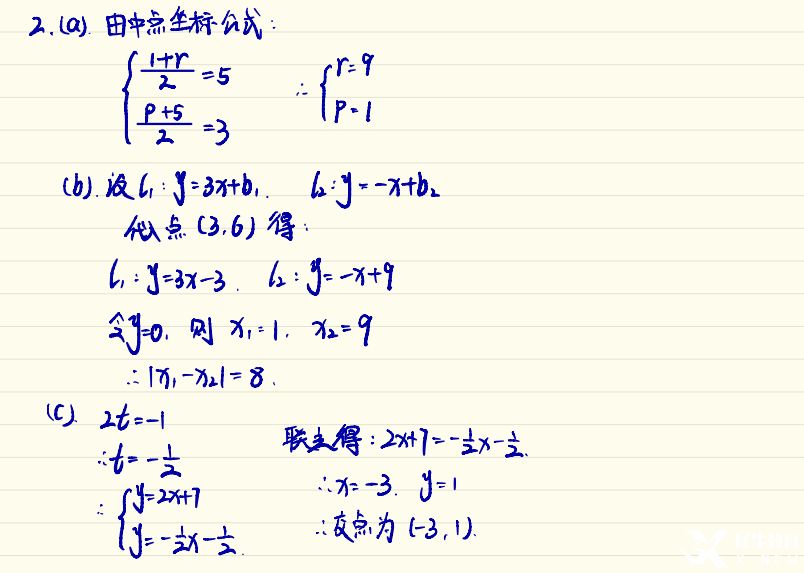 2.(a). 由中点坐标公式:
{ (1+r)/2 = 5
(p+5)/2 = 3
∴ { r=9
p=1
(b). 设 l₁: y=3x+b₁. l₂: y=-x+b₂
代入点 (3,6) 得:
l₁: y=3x-3. l₂: y=-x+9
令y=0, 则 x₁=1, x₂=9
∴ |x₁-x₂|=8.
(c). 2t=-1
∴ t=-1/2
∴ { y=2x+7
y=-1/2x-1/2.
联立得: 2x+7=-1/2x-1/2.
∴ x=-3. y=1
∴ 交点为 (-3,1).